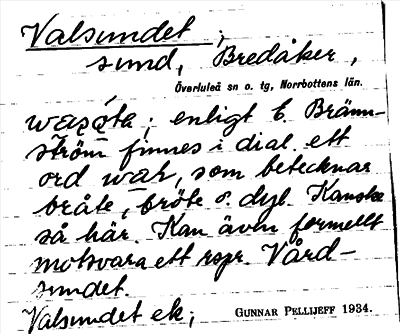 Valsundet;
sund, Bredåker,
Överluleå sn o. tg, Norrbottens län.
enligt E. Bränn-
ström finnes i dial. ett
ord waṛ, som betecknar
bråte, bröte o. dyl. Kanske
så här. Kan även formellt
motsvara ett rspr. Vård-
sundet.
Valsundet ek;
GUNNAR PELLIJEFF 1934.